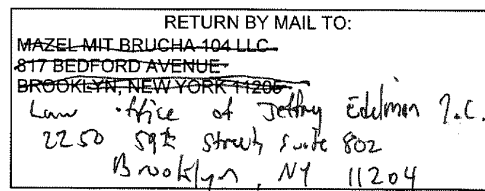 RETURN BY MAIL TO:
MAZEL MIT BRUCHA 104 LLC
817 BEDFORD AVENUE
BROOKLYN, NEW YORK 11205
Law office of Jeffrey Edelman P.C.
2250 59th Street, Suite 802
Brooklyn, NY 11204